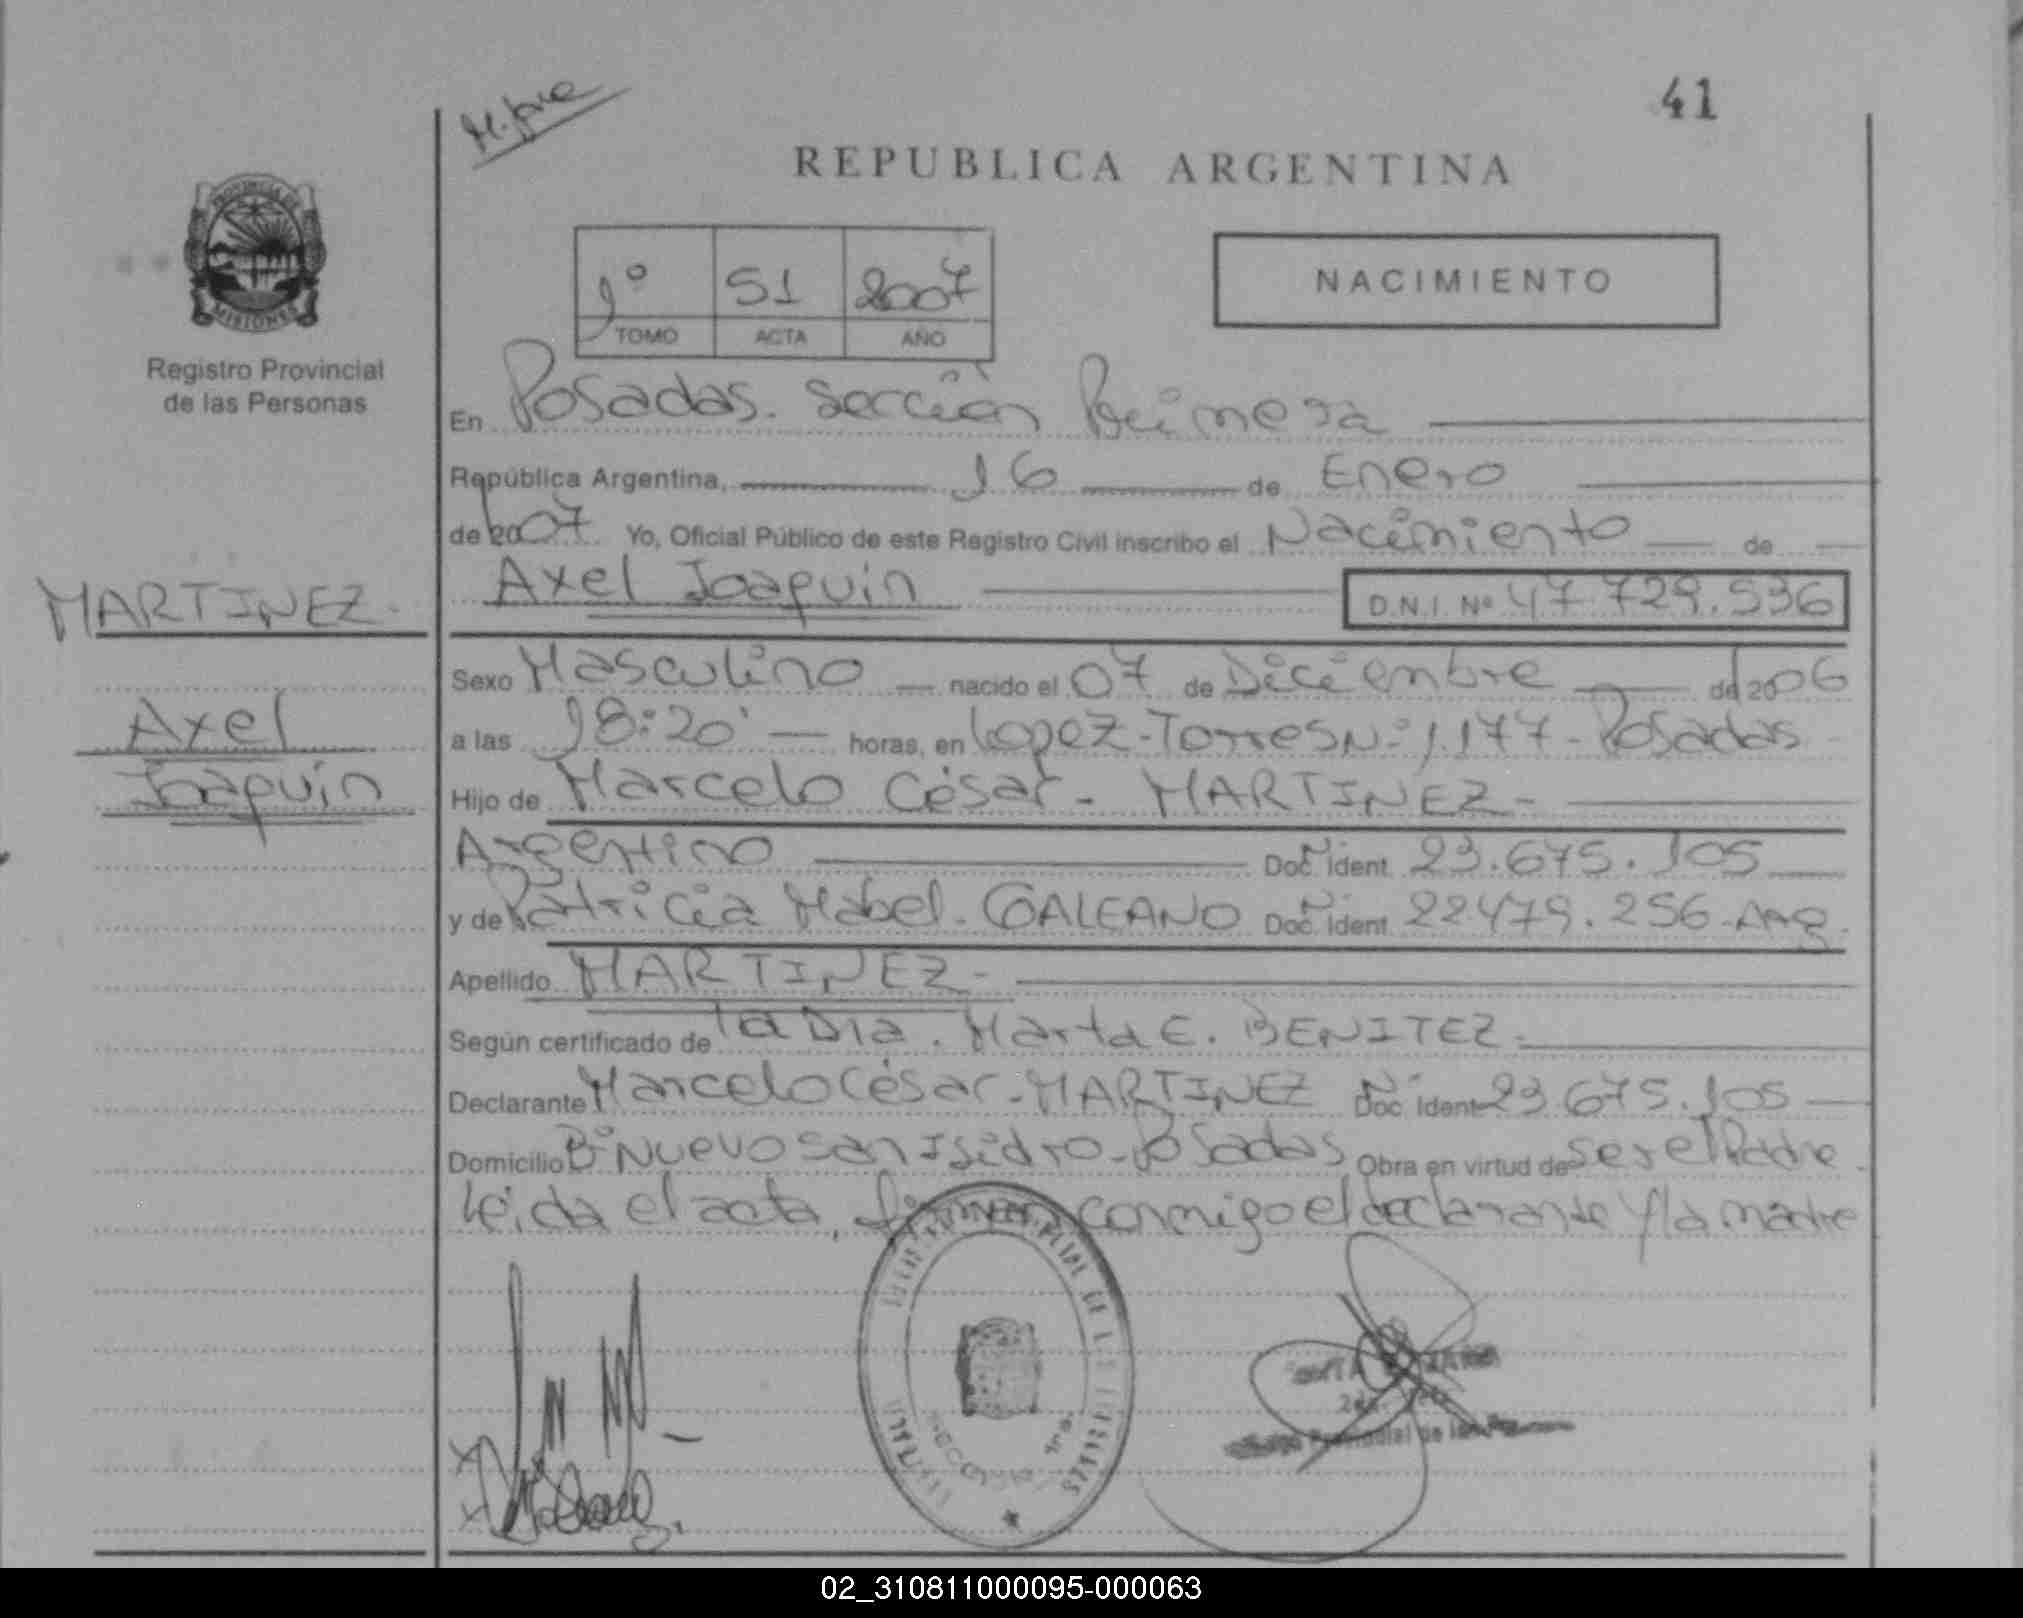 41
REPUBLICA ARGENTINA
PROVINCIA DE
MISIONES
Registro Provincial
de las Personas
1º 51 2007
TOMO ACTA AÑO
NACIMIENTO
En Posadas. Sección Primera
República Argentina, 16 de Enero
de 2007 Yo, Oficial Público de este Registro Civil inscribo el Nacimiento de
Axel Joaquin D.N.I. Nº 47.729.536
MARTINEZ
Axel
Joaquin
Sexo Masculino nacido el 07 de Diciembre de 2006
a las 18:20' horas, en Lopez-Torres Nº 1.177-Posadas
Hijo de Marcelo César - MARTINEZ -
Argentino Doc. Ident. 23.675.105
y de Patricia Mabel - GALEANO Doc. Ident. 22479.256-Arg.
Apellido MARTINEZ -
Según certificado de la Dra. Marta E. BENITEZ.
Declarante Marcelo César - MARTINEZ Doc. Ident. 23.675.105
Domicilio Bº Nuevo San Isidro - Posadas Obra en virtud de ser el Padre.
Leída el acta, firman conmigo el declarante y la madre
02_310811000095-000063